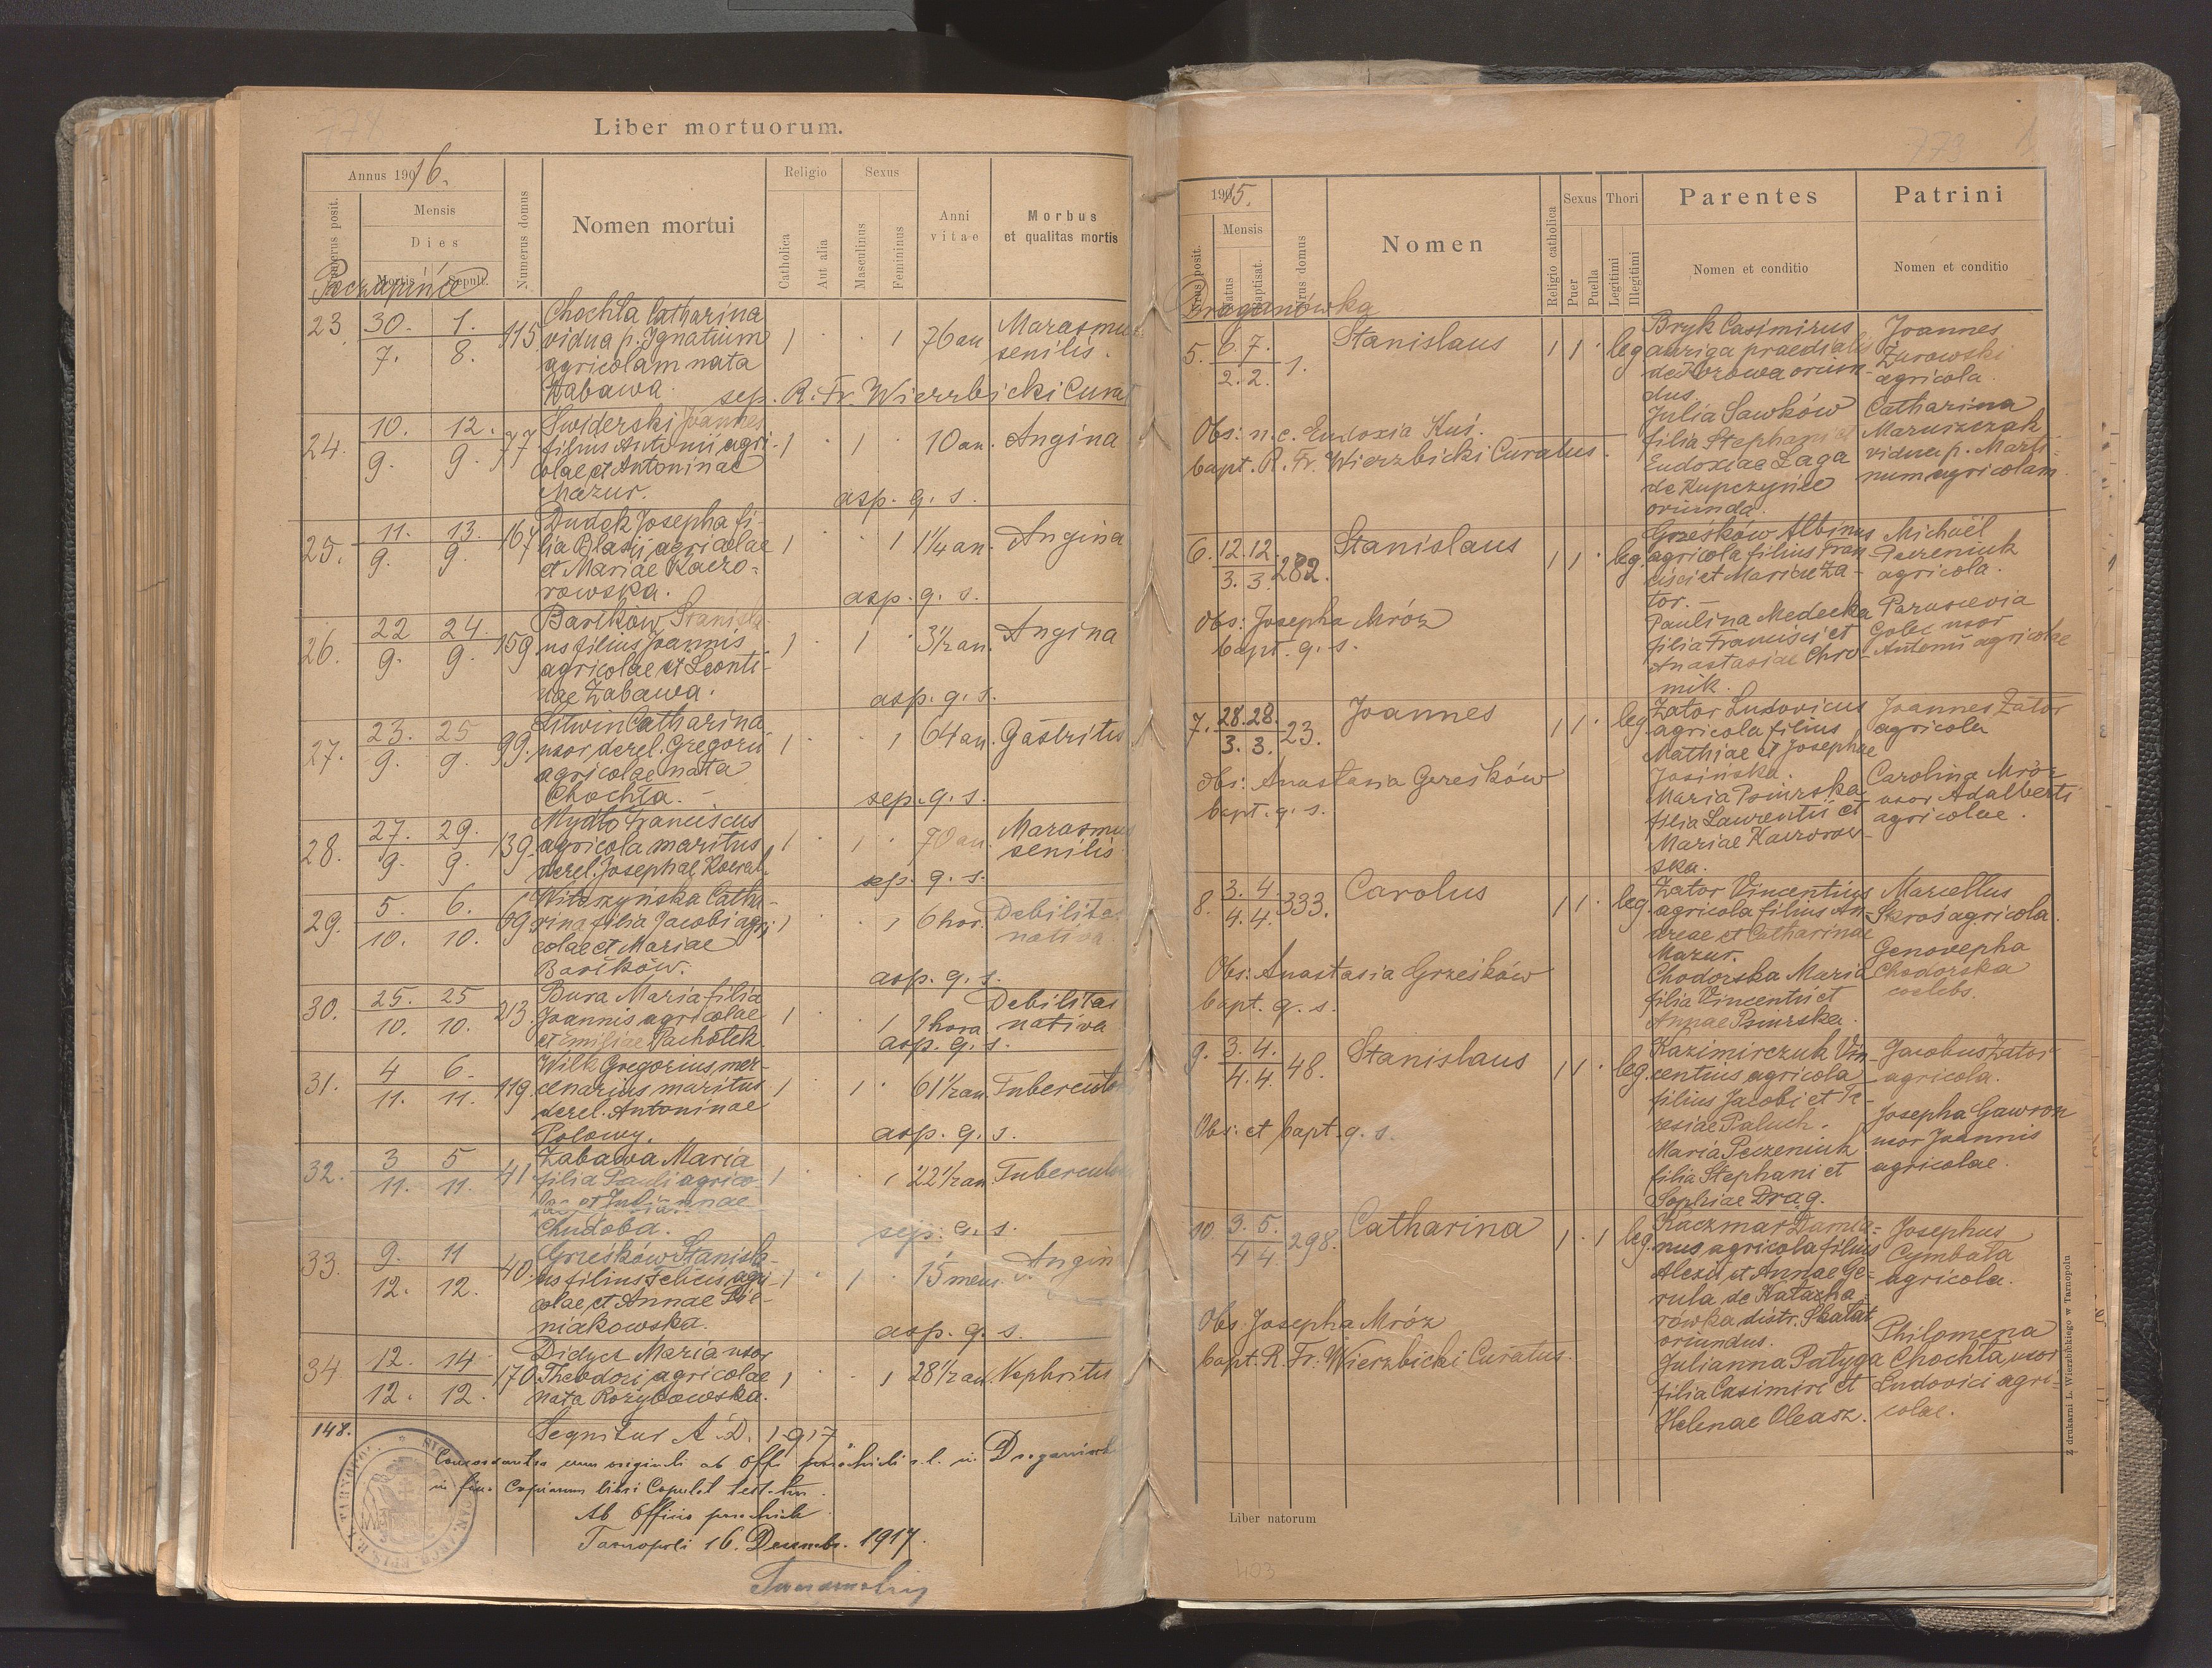 Liber mortuorum.
Annus 1906 16.
Numerus posit.
Mensis
Dies
Mortis
Sepult.
Numerus domus
Nomen mortui
Religio
Catholica
Aut alia
Sexus
Masculinus
Femininus
Anni vitae
Morbus et qualitas mortis
Poczapińce
23. 30. 1. 115 Chochła Catharina 1 · · 1 76 an Marasmus
7. 8. vidua p. Ignatium senilis.
agricolam nata
Zabawa. sep. R. Fr. Wierzbicki Cura
24. 10. 12. 77 Świderski Joannes 1 · 1 · 10 an. Angina
9. 9. filius Antonii agri-
colae et Antoninae
Mazur. asp. q. s.
25. 11. 13. 167 Dudek Josepha fi- 1 · · 1 1¼ an. Angina
9. 9. lia Blasii agricolae
et Mariae Kaczo-
rowska. asp. q. s.
26. 22 24. 159 Barików Stanisla 1 · 1 · 3½ an. Angina
9. 9. us filius Joannis
agricolae et Leonti-
nae Zabawa. asp. q. s.
27. 23. 25 99. Litwin Catharina 1 · · 1 64 an. Gastritis
9. 9. uxor derel. Gregorii
agricolae nata
Chochła. sep. q. s.
28. 27. 29. 139. Mydło Franciscus 1 · 1 · 70 an. Marasmus
9. 9. agricola maritus senilis
derel. Josephae Kowal. sep. q. s.
29. 5. 6. 69 Witszyńska Catha- 1 · · 1 6 hor. Debilitas
10. 10. rina filia Jacobi agri- nativa
colae et Mariae
Barików. asp. q. s.
30. 25. 25 213. Bura Maria filia 1 · · 1 1 hora Debilitas
10. 10. Joannis agricolae nativa
et Emiliae Pachołek asp. q. s.
31. 4 6. 119. Wilk Gregorius, mer- 1 · 1 · 61½ an. Tubercul
11. 11. cenarius maritus
derel. Antoninae
Polowy. asp. q. s.
32. 3 5 41 Zabawa Maria 1 · · 1 22½ an Tubercul
11. 11. filia Pauli agrico-
lae et Julianae
Chudoba. sep. q. s.
33. 9. 11 40. Grześków Stanisla- 1 · 1 · 15 mens. Angin
12. 12. us filius Felicis agri-
colae et Annae Pie-
niakowska. asp. q. s.
34 12. 14 170 Didyck Maria uxor 1 · · 1 28½ an. Nephritis
12. 12. Theodori agricolae
nata Rozybowska.
148. Sequitur A. D. 1917
Concordantia cum originali ab Offi parochiali r. l. in Draganówk
in fine Copiarum libri Copulat testatur.
Ab Officio parochiali
Tarnopoli 16. Decembr. 1917.
1905 15.
Nrus posit.
Mensis
Natus
Baptisat.
Nrus domus
Nomen
Religio catholica
Sexus
Puer
Puella
Thori
Legitimi
Illegitimi
Parentes
Nomen et conditio
Patrini
Nomen et conditio
Draganówka
5. 6. 7. 1. Stanislaus 1 1 · leg. Bryk Casimirus Joannes
2. 2. auriga praedialis Żurowski
de Zborowa oriun- agricola.
dus.
Julia Sawków Catharina
Obs: n. e. Eudoxia Kuś. filia Stephani et Maruszczak
bapt. R. Fr. Wierzbicki Curatus. Eudoxiae Laga vidua p. Marti-
de Kupczyńce num agricolam
oriunda.
6. 12. 12. 282. Stanislaus 1 1 · leg. Grześków Albinus Michaël
3. 3 agricola filius Fran- Peczeniuk
cisci et Mariae Za- agricola.
tor.
Obs: Josepha Mróz Paulina Medecka Parascevia
bapt. q. s. filia Francisci et Golec uxor
Anastasiae Chro- Antonii agricolae
mik.
7. 28. 28. 23. Joannes 1 1 · leg. Zator Ludovicus Joannes Zator
3. 3. agricola filius agricola
Mathiae et Josephae
Jasińska.
Obs: Anastasia Grześków Maria Psiurska Carolina Mróz
bapt. q. s. filia Laurentii et uxor Adalberti
Mariae Kaczorow- agricolae.
ska.
8. 3. 4. 333. Carolus 1 1 · leg. Zator Vincentius Marcellus
4. 4. agricola filius An- Skroś agricola.
dreae et Catharinae
Mazur. Genovepha
Obs: Anastasia Grześków Chodorska Maria Chodorska
bapt. q. s. filia Vincentii et coelebs.
Annae Psiurska.
9. 3. 4. 48. Stanislaus 1 1 · leg. Kazimirczuk Vin- Jacobus Zator
4. 4. centius agricola agricola.
filius Jacobi et Te-
Obs: et bapt. q. s. resiae Paluch. Josepha Gawron
Maria Peczeniuk uxor Joannis
filia Stephani et agricolae.
Sophiae Drąg.
10. 3. 5. 298. Catharina 1 · 1 leg. Kaczmar Damia- Josephus
4 4. nus agricola filius Cymbała
Alexii et Annae Ge- agricola.
rula de Hałuszcza-
Obs. Josepha Mróz rówka distr. Skałat
bapt. R. Fr. Wierzbicki Curatus. oriundus. Philomena
Julianna Patyga Chochła uxor
filia Casimiri et Ludovici agri-
Helenae Oleasz. colae.
Liber natorum
Z drukarni L. Wierzbickiego w Tarnopolu
403